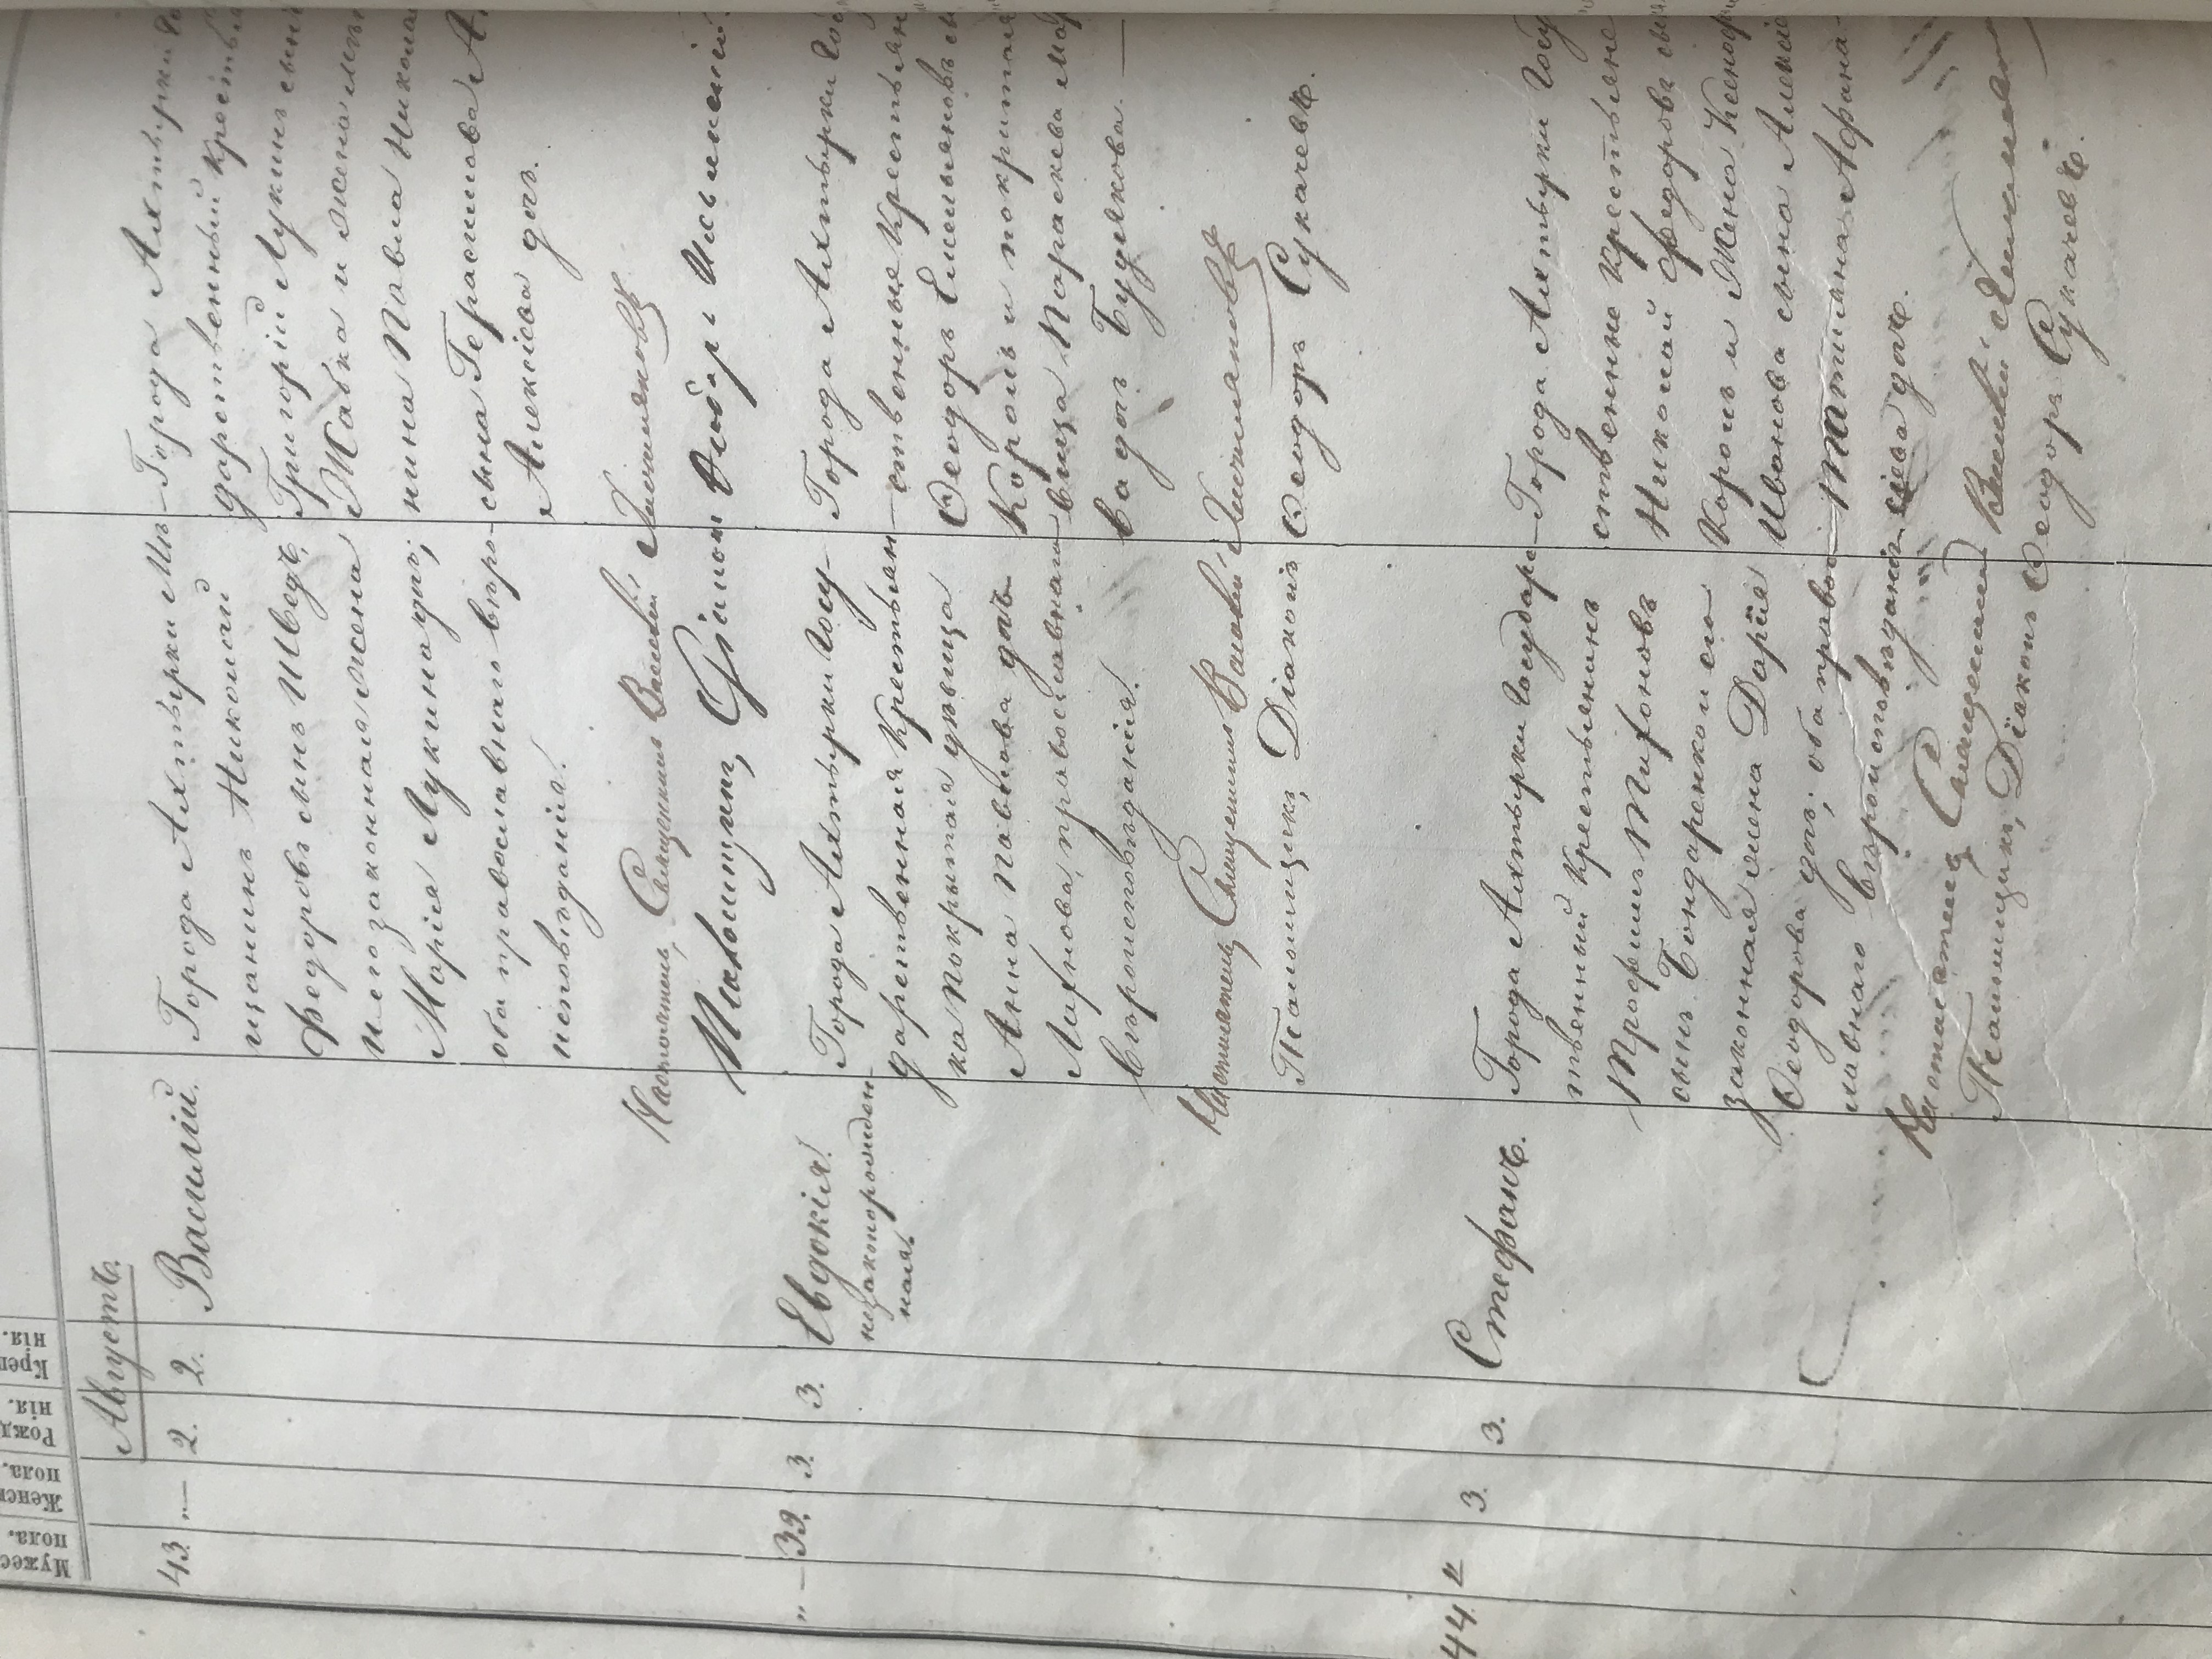 Мужес
пола.
Женск
пола.
Рожд
нія.
Крещ
нія.
Августъ.
43 „— 2. 2. Василій.
Города Ахтырки Мѣ-
щанинъ Николай
Федоровъ сынъ Шведъ,
и его законная жена
Марія Лукина дчь;
оба православнаго вѣро-
исповѣданія.
Города Ахтырки Го
дарственный крестья
Григорій Лукинъ сын
Жабка и жена мѣ
нина Павла Никола
сына Герасимова А.
Алексіева дчь.
Настоятель, Священникъ Василій
Псаломщикъ, Стефанъ
„— 39. 3. 3. Евдокія.
незаконорожден-
ная.
Города Ахтырки Госу-
дарственная крестьян-
ка покрытая дѣвица
Анна Павлова дчь
православнаго
вѣроисповѣданія.
Города Ахтырки Го
ственные Крестьян
Ѳеодоръ Емельяновъ с
Король и покрытая
вица Параскева Ма
ва дчь Будякова.
Настоятель, Священникъ Василій
Псаломщикъ, Діаконъ Ѳеодоръ Сукачевъ.
44 „ 3. 3. Стефанъ.
Города Ахтырки Государс-
твенный Крестьянинъ
Трофимъ Тифоновъ
сынъ Бондаренко и его
законная жена Дарія
Ѳеодорова дчь; оба правос-
лавнаго вѣроисповѣданія.
Города Ахтырки Госу
ственные крестьяне
Николай Федоровъ сы
Король и Жена Ксеноф
Иванова сына Алексіе
Татіана Афана-
сіева дчь.
Настоятель, Священникъ Василій
Псаломщикъ, Діаконъ Ѳеодоръ Сукачевъ.